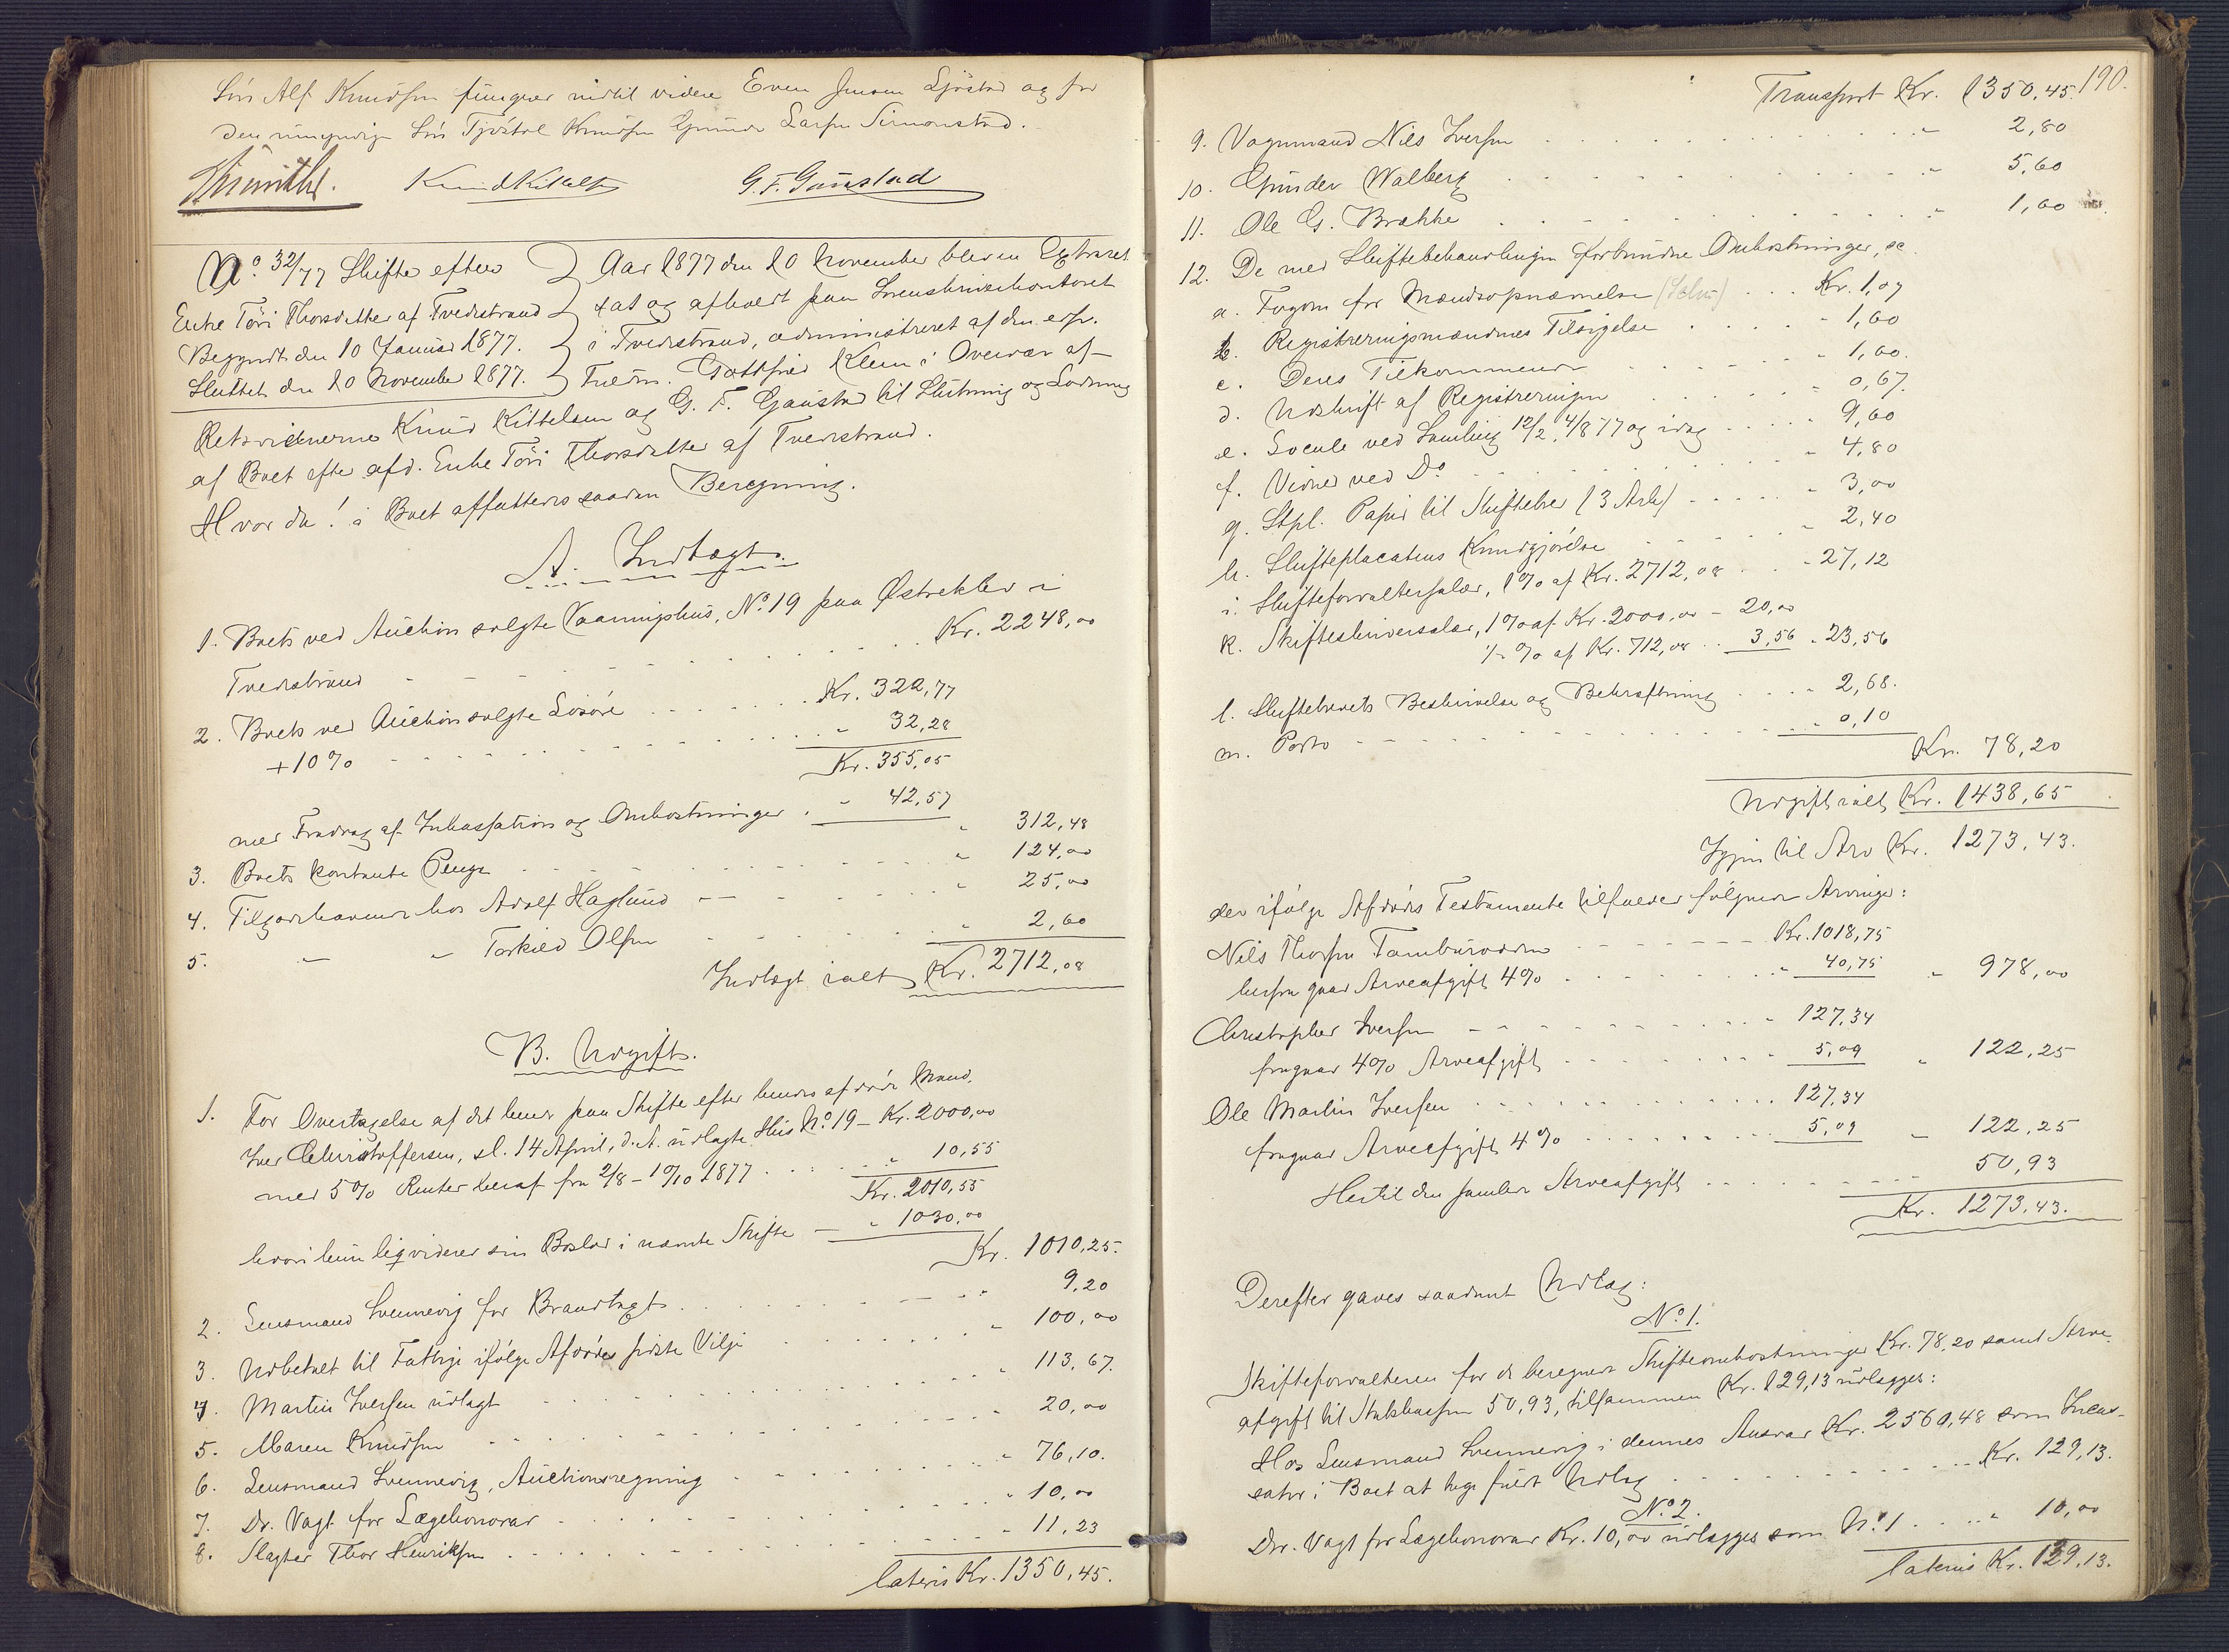 Søn Alf Knudsen fungerer indtil videre Even Jensen Sjøstad og for
den umyndige Søn Tjøstol Knudsen Gunder Larsen Simonstad.
Knud Kittelsen G. F. Gaustad
No. 32/77 Skifte efter
Enke Töri Thorsdatter af Tvedestrand
Begyndt den 10 Januar 1877.
Sluttet den 10 November 1877.
Aar 1877 den 10 November blev en Extraret
sat og afholdt paa Sorenskriverkontoret
i Tvedestrand, administreret af den edsv.
Fuldm. Gottfried Klem i Overvær af
Retsvidnerne Knud Kittelsen og G. F. Gaustad til Slutning og Lodning
af Boet efter afd. Enke Töri Thorsdatter af Tvedestrand.
Hvorda! i Boet affattedes saadan Beregning.
A. Indtægt.
1. Boets ved Auction solgte Vaaningshus, No. 19 paa Østreklev i
Tvedestrand - - - Kr. 2248,00
2. Boets ved Auction solgte Løsøre . . . Kr. 322,77
+10% - - - " 32,28
Kr. 355,05
med Fradrag af Inkassation og Omkostninger . " 42,57
" 312,48
3. Boets kontante Penge - - - " 124,00
4. Tilgodehavende hos Adolf Haglund - - - " 25,00
5. " " Torkild Olsen - - - " 2,60
Indtægt ialt Kr. 2712,08
B. Udgift.
1. For Overtagelse af det hende paa Skifte efter hendes afdøde Mand,
Iver Christoffersen, sl. 14 April, d. A. udlagte Hus No. 19 - Kr. 2000,00
med 5% Renter heraf fra 2/8 - 10/10 1877 . . . " 10,55
Kr. 2010,55
hvori hun liqviderer sin Boslod i nævnte Skifte - " 1030,00
Kr. 1010,25.
2. Lensmand Svennevig for Brandtagt . . . " 9,20
3. Udbetalt til Fattige ifølge Afdødes sidste Vilje . . . " 100,00
4. Martin Iversen udlagt . . . " 113,67.
5. Maren Knudsen . . . " 20,00
6. Lensmand Svennevig, Auctionsregning . . . " 76,10.
7. Dr. Vagt for Lægehonorar . . . " 10,00
8. Slagter Thor Henriksen . . . " 11,23
lateris Kr. 1350,45.
190.
Transport Kr. 1350,45.
9. Vognmand Nils Iversen . . . " 2,80
10. Gunder Walberg . . . " 5,60
11. Ole G. Brække . . . " 1,60
12. De med Skiftebehandlingen forbundne Omkostninger, sc
a. Fogden for Mændsopnævnelse . . . Kr. 1,07
b. Registreringsmændenes Tilsigelse . . . " 1,60
c. Deres Tilkommende . . . " 1,60.
d. Udskrift af Registreringen . . . " 0,67.
e. Locale ved Samling 12/2, 4/8 77 og idag . . . " 9,60
f. Vidner ved Do . . . " 4,80
g. Stpl. Papir til Skiftebrev (3 Ark) . . . " 3,00
h. Skifteplacatens Kundgjørelse . . . " 2,40
i. Skifteforvaltersalær, 1% af Kr. 2712,08 . . . " 27,12
k. Skifteskriversalær, 1% af Kr. 2000,00 - 20,00
½% af Kr. 712,08 . . 3,56 " 23,56
l. Skiftebrevets Beskrivelse og Bekræftning . . . " 2,68.
m. Porto - - - " 0,10
Kr. 78,20
Udgift ialt Kr. 1438,65
Igjen til Arv Kr. 1273,43.
der ifølge Afdødes Testamente tilfalder følgende Arvinger:
Nils Thorsen Tamburodden - - - Kr. 1018,75
herfra gaar Arveafgift 4% . . . " 40,75 " 978,00
Christopher Iversen - - - " 127,34
fragaar 4% Arveafgift . . . " 5,09 " 122,25
Ole Martin Iversen . . . 127,34
fragaar Arveafgift 4% . . . 5,09 " 122,25
Hertil den samlede Arveafgift . . . 50,93
Kr. 1273,43.
Derefter gaves saadant Udlæg:
No. 1.
Skifteforvalteren for de beregnede Skifteomkostninger Kr. 78,20 samt Arve-
afgift til Statskassen 50,93, tilsammen Kr. 129,13 udlægges:
Hos Lensmand Svennevig i dennes Ansvar Kr. 2560,48 som Incas-
sator i Boet at tage fuldt Udlæg . . . Kr. 129,13.
No. 2.
Dr. Vagt for Lægehonorar Kr. 10,00 udlægges som No. 1 . . . " 10,00
lateris Kr. 139,13.